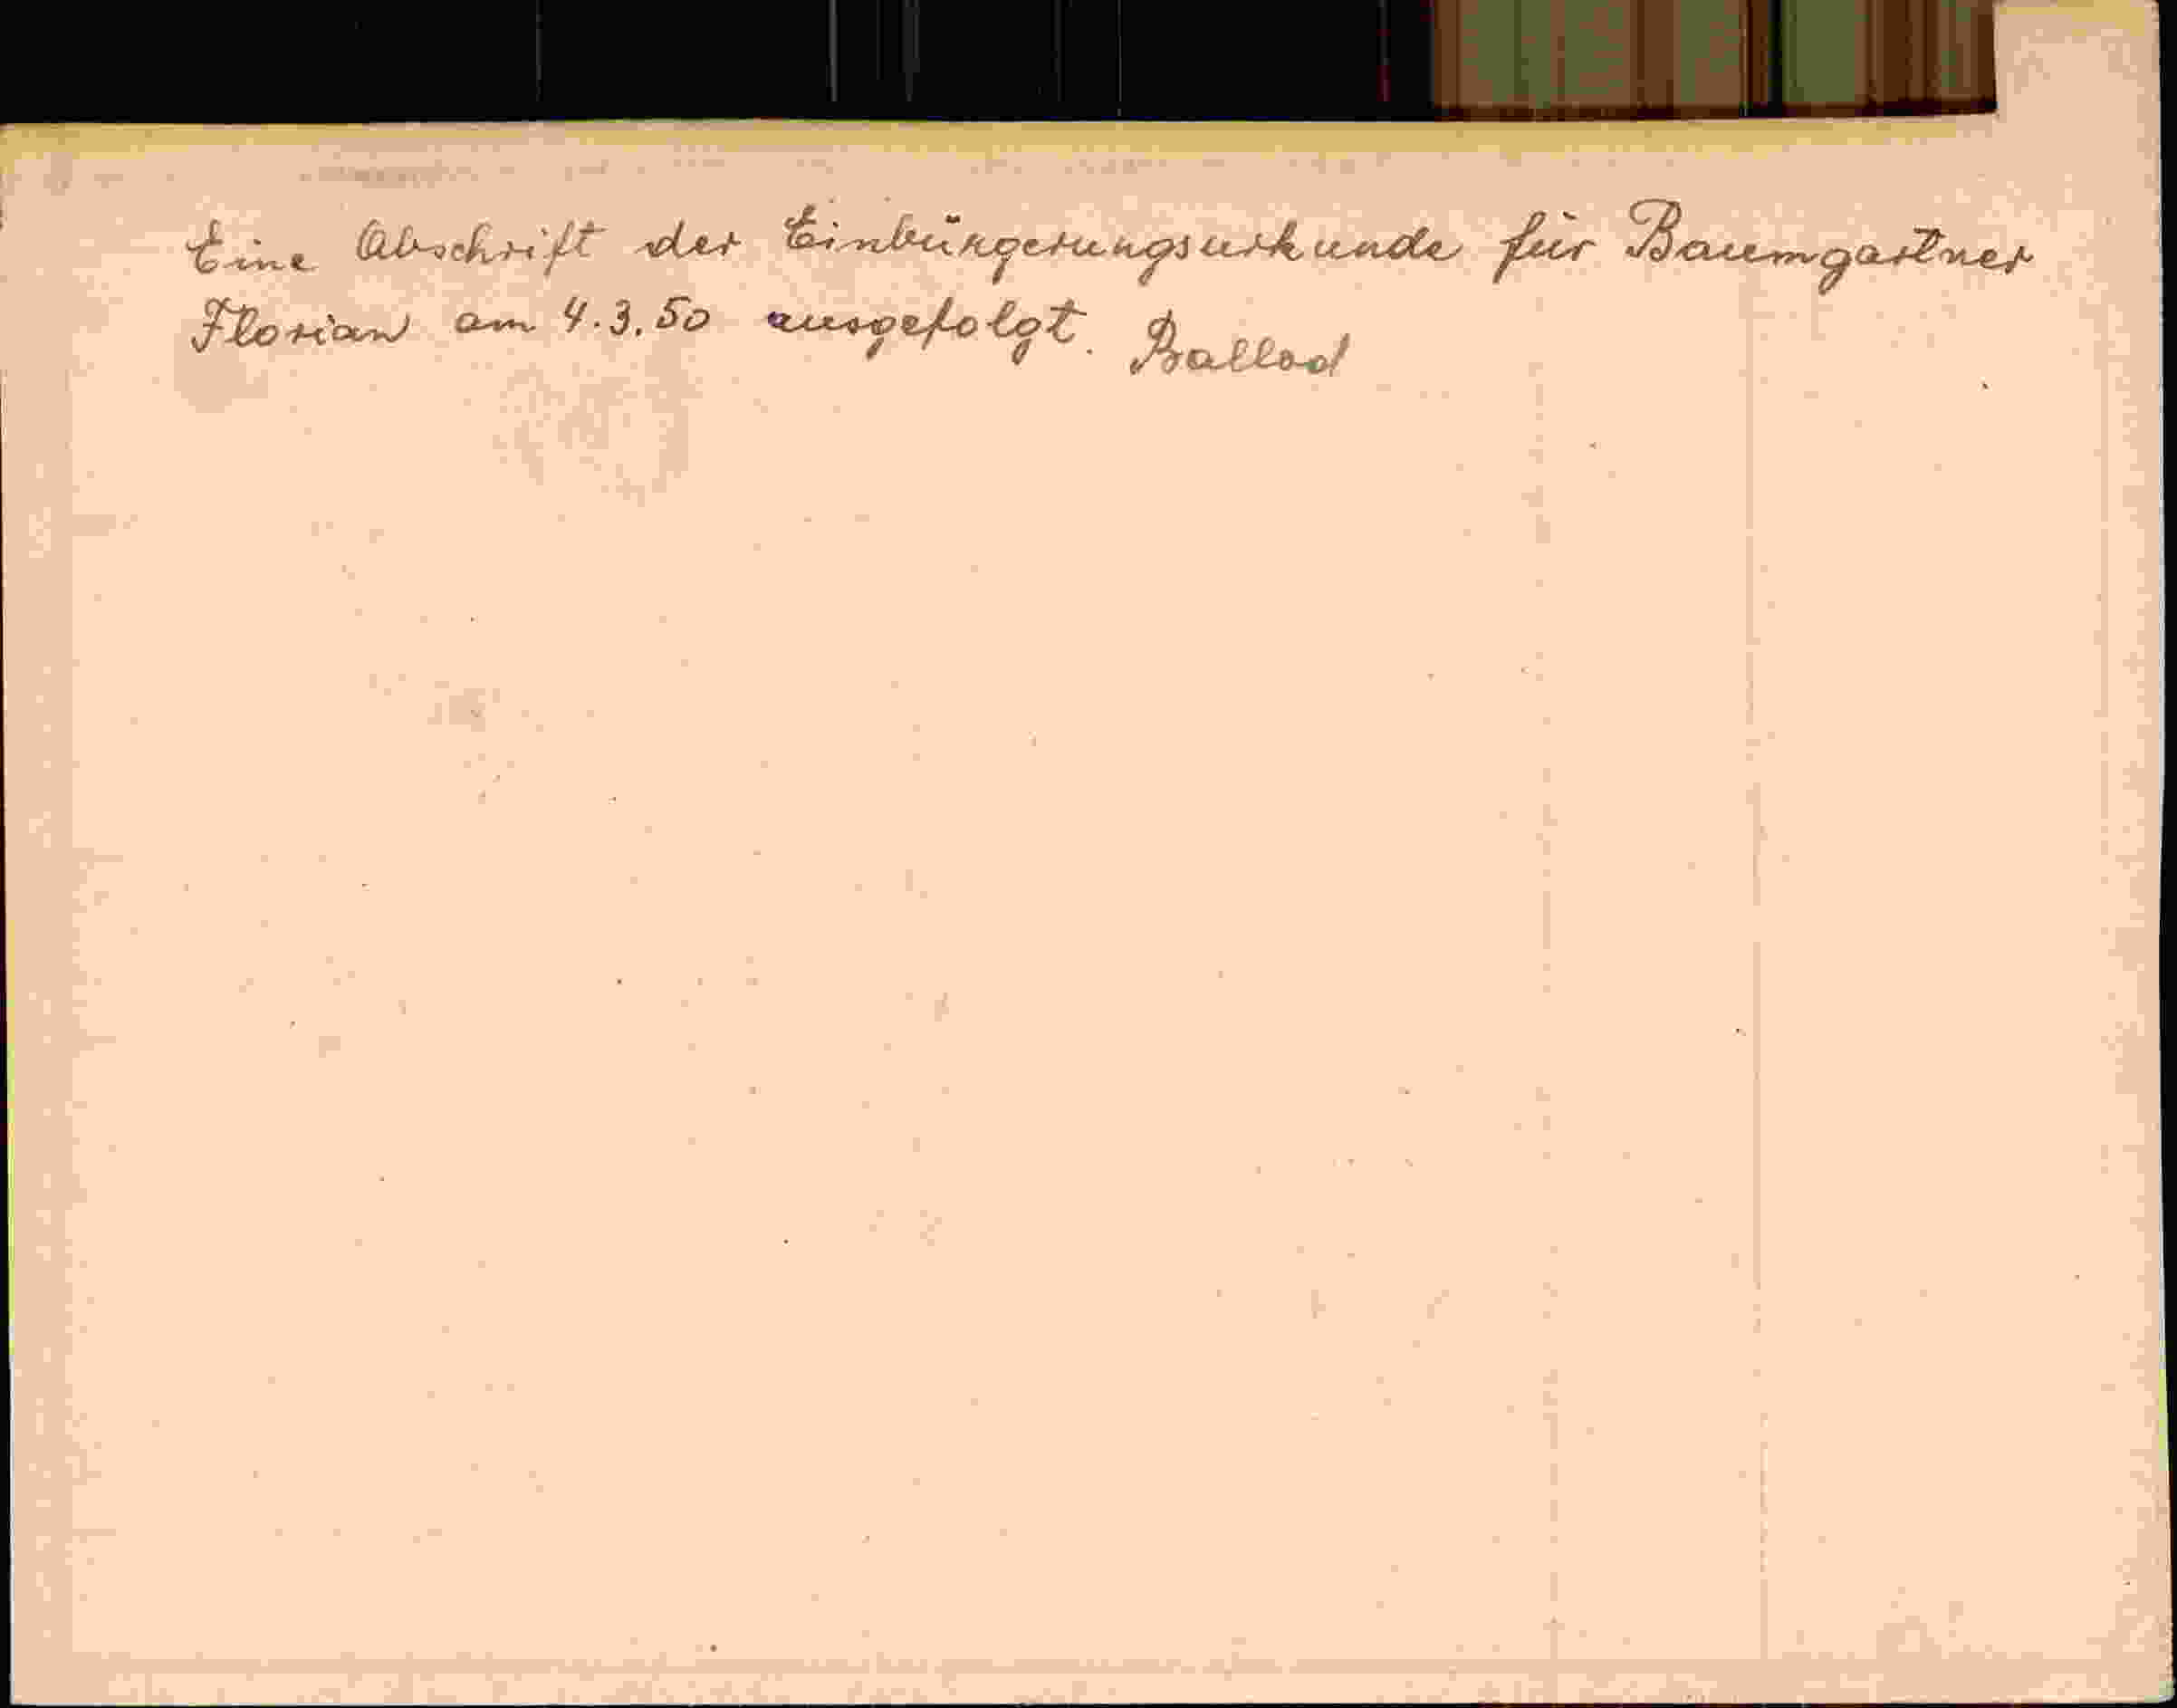 Eine Abschrift der Einbürgerungsurkunde für Baumgartner
Florian am 4.3.50 ausgefolgt. Ballod